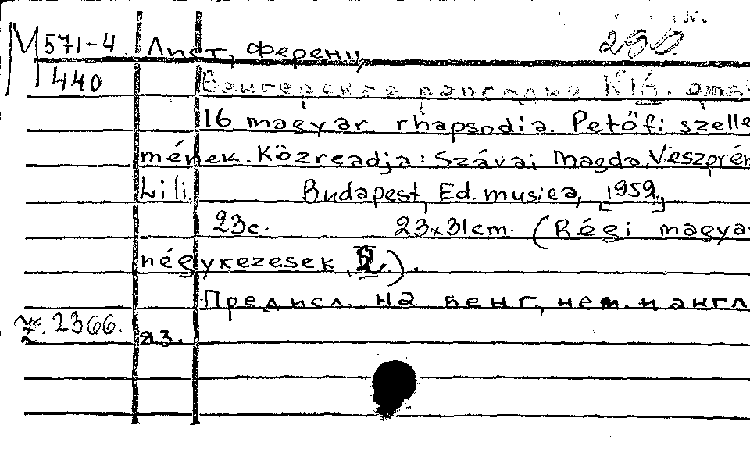 М 571-4 Лист, Ференц 200
440 Венгерская рапсодия №16.
16 magyar rhapsodia. Petőfi szelle
mének. Közreadja: Szávai Magda, Veszprém
Lili. Budapest, Ed. musica, [1959]
23с. 23x31cm. (Régi magya
négykezesek).
Предисл. на венг., нем. и англ
2366. яз.